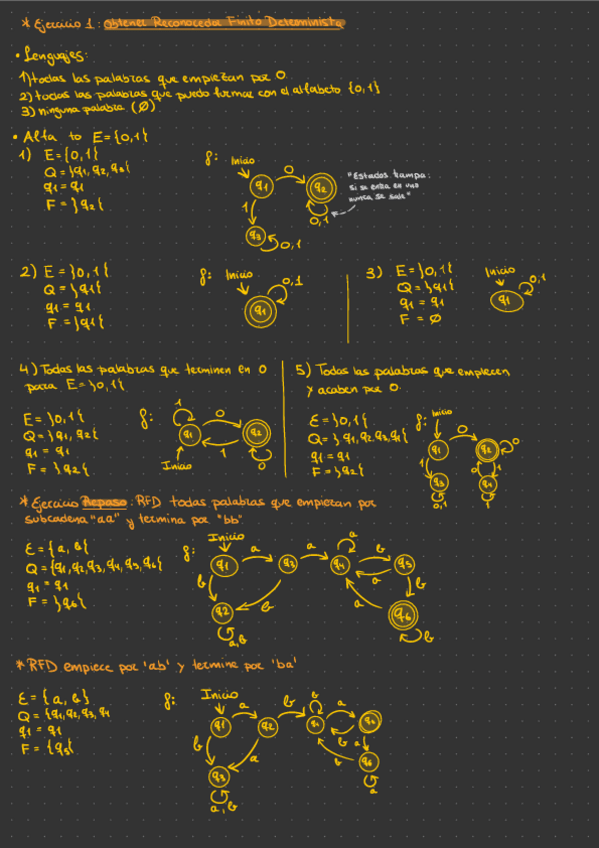 * Ejercicio 1: Obtener Reconocedor Finito Determinista
• Lenguajes:
1) todas las palabras que empiezan por 0
2) todas las palabras que puedo formar con el alfabeto {0,1}
3) ninguna palabra (Ø)
• Alfa to E={0,1}
1) E={0,1}
Q = {q1, q2, q3}
q1 = q1
F = {q2}
f: Inicio
q1 0 q2
1
0,1
q3 0,1
"Estados trampa:
si se entra en uno
nunca se sale"
2) E = {0,1}
Q = {q1}
q1 = q1
F = {q1}
f: Inicio
0,1
q1
3) E = {0,1}
Q = {q1}
q1 = q1
F = Ø
Inicio
0,1
q1
4) Todas las palabras que terminen en 0
para E = {0,1}
E = {0,1}
Q = {q1, q2}
q1 = q1
F = {q2}
f: 1 0
q1 q2
1
Inicio 0
5) Todas las palabras que empiecen
y acaben por 0.
E = {0,1}
Q = {q1, q2, q3, q4}
q1 = q1
F = {q2}
f: Inicio
0
q1 q2 0
1 0 1
q3 q4
0,1 1
* Ejercicio Repaso: RFD todas palabras que empiezan por
subcadena "aa" y termina por "bb"
E = {a, b}
Q = {q1, q2, q3, q4, q5, q6}
q1 = q1
F = {q6}
f: Inicio
a a a b
q1 q3 q4 q5
a
b b a b
q2 q6
a,b b
* RFD empiece por 'ab' y termine por 'ba'
E = {a, b}
Q = {q1, q2, q3, q4
q1 = q1
F = {q5}
f: Inicio
a b b a
q1 q2 q4
b a b a
b q6
q3 a
a,b